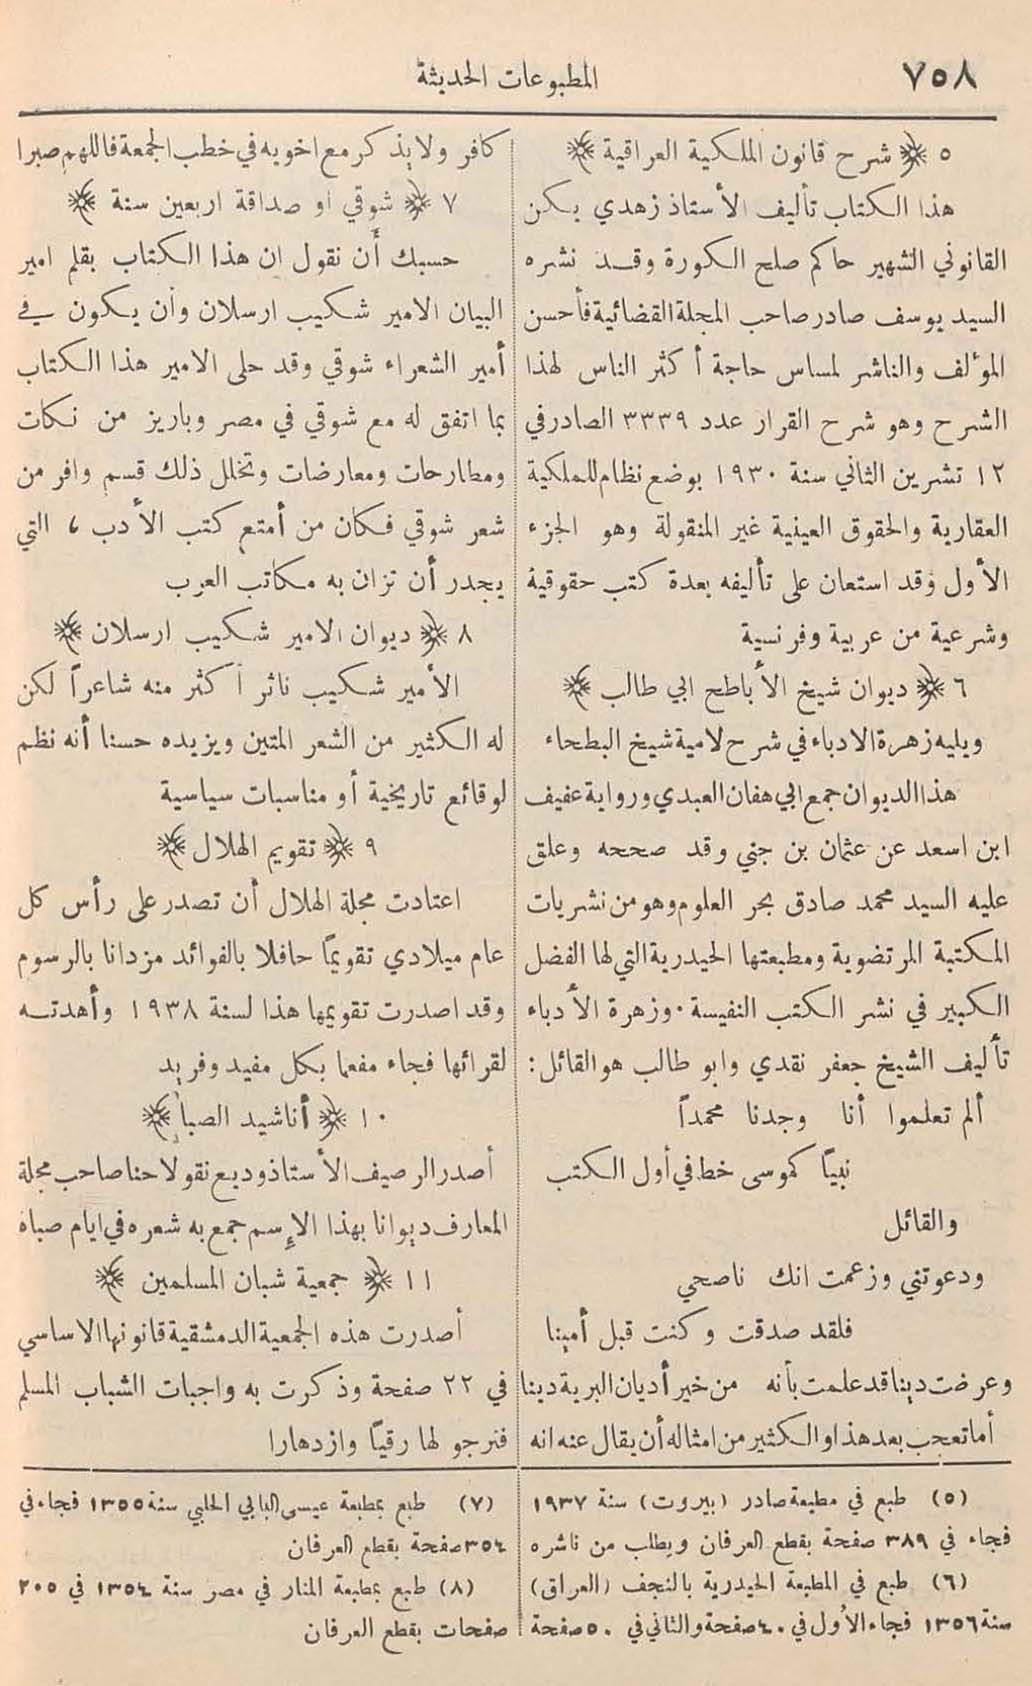 ٧٥٨
المطبوعات الحديثة
٥ ﴿ شرح قانون الملكية العراقية ﴾
هذا الكتاب تأليف الأستاذ زهدي يكن
القانوني الشهير حاكم صلح الكورة وقد نشره
السيد يوسف صادر صاحب المجلة القضائية فأحسن
المؤلف والناشر لمساس حاجة أكثر الناس لهذا
الشرح وهو شرح القرار عدد ٣٣٣٩ الصادر في
١٢ تشرين الثاني سنة ١٩٣٠ بوضع نظام للملكية
العقارية والحقوق العينية غير المنقولة وهو الجزء
الأول وقد استعان على تأليفه بعدة كتب حقوقية
وشرعية من عربية وفرنسية
٦ ﴿ ديوان شيخ الأباطح ابي طالب ﴾
ويليه زهرة الادباء في شرح لامية شيخ البطحاء
هذا الديوان جمع ابي هفان العبدي ورواية عفيف
ابن اسعد عن عثمان بن جني وقد صححه وعلق
عليه السيد محمد صادق بحر العلوم وهو من نشريات
المكتبة المرتضوية ومطبعتها الحيدرية التي لها الفضل
الكبير في نشر الكتب النفيسة . وزهرة الأدباء
تأليف الشيخ جعفر نقدي وابو طالب هو القائل :
ألم تعلموا أنا وجدنا محمداً
نبيّا كموسى خط في أول الكتب
والقائل
ودعوتني وزعمت انك ناصحي
فلقد صدقت وكنت قبل أمينا
وعرضت دينا قد علمت بأنه من خير أديان البرية دينا
أما تعجب بعد هذا والكثير من امثاله أن يقال عنه انه
(٥) طبع في مطبعة صادر (بيروت) سنة ١٩٣٧
فجاء في ٣٨٩ صفحة بقطع العرفان ويطلب من ناشره
(٦) طبع في المطبعة الحيدرية بالنجف (العراق)
سنة ١٣٥٦ فجاء الأول في ٤٠ صفحة والثاني في ٥٠ صفحة
كافر ولا يذكر مع اخويه في خطب الجمعة فاللهم صبرا
٧ ﴿ شوقي او صداقة اربعين سنة ﴾
حسبك أن نقول ان هذا الكتاب بقلم امير
البيان الامير شكيب ارسلان وأن يكون في
أمير الشعراء شوقي وقد حلى الامير هذا الكتاب
بما اتفق له مع شوقي في مصر وباريز من نكات
ومطارحات ومعارضات وتخلل ذلك قسم وافر من
شعر شوقي فكان من أمتع كتب الأدب ، التي
يجدر أن تزان به مكاتب العرب
٨ ﴿ ديوان الامير شكيب ارسلان ﴾
الأمير شكيب ناثر أكثر منه شاعراً لكن
له الكثير من الشعر المتين ويزيده حسنا أنه نظم
لوقائع تاريخية أو مناسبات سياسية
٩ ﴿ تقويم الهلال ﴾
اعتادت مجلة الهلال أن تصدر على رأس كل
عام ميلادي تقويمًا حافلا بالفوائد مزدانا بالرسوم
وقد اصدرت تقويمها هذا لسنة ١٩٣٨ وأهدته
لقرائها فجاء مفعما بكل مفيد وفريد
١٠ ﴿ أناشيد الصبا ﴾
أصدر الرصيف الأستاذ وديع نقولا حنا صاحب مجلة
المعارف ديوانا بهذا الإسم جمع به شعره في ايام صباه
١١ ﴿ جمعية شبان المسلمين ﴾
أصدرت هذه الجمعية الدمشقية قانونها الاساسي
في ٢٢ صفحة وذكرت به واجبات الشباب المسلم
فنرجو لها رقيّا وازدهارا
(٧) طبع بمطبعة عيسى البابي الحلبي سنة ١٣٥٥ فجاء في
٣٥٤ صفحة بقطع العرفان
(٨) طبع بمطبعة المنار في مصر سنة ١٣٥٤ في ٢٠٠
صفحات بقطع العرفان